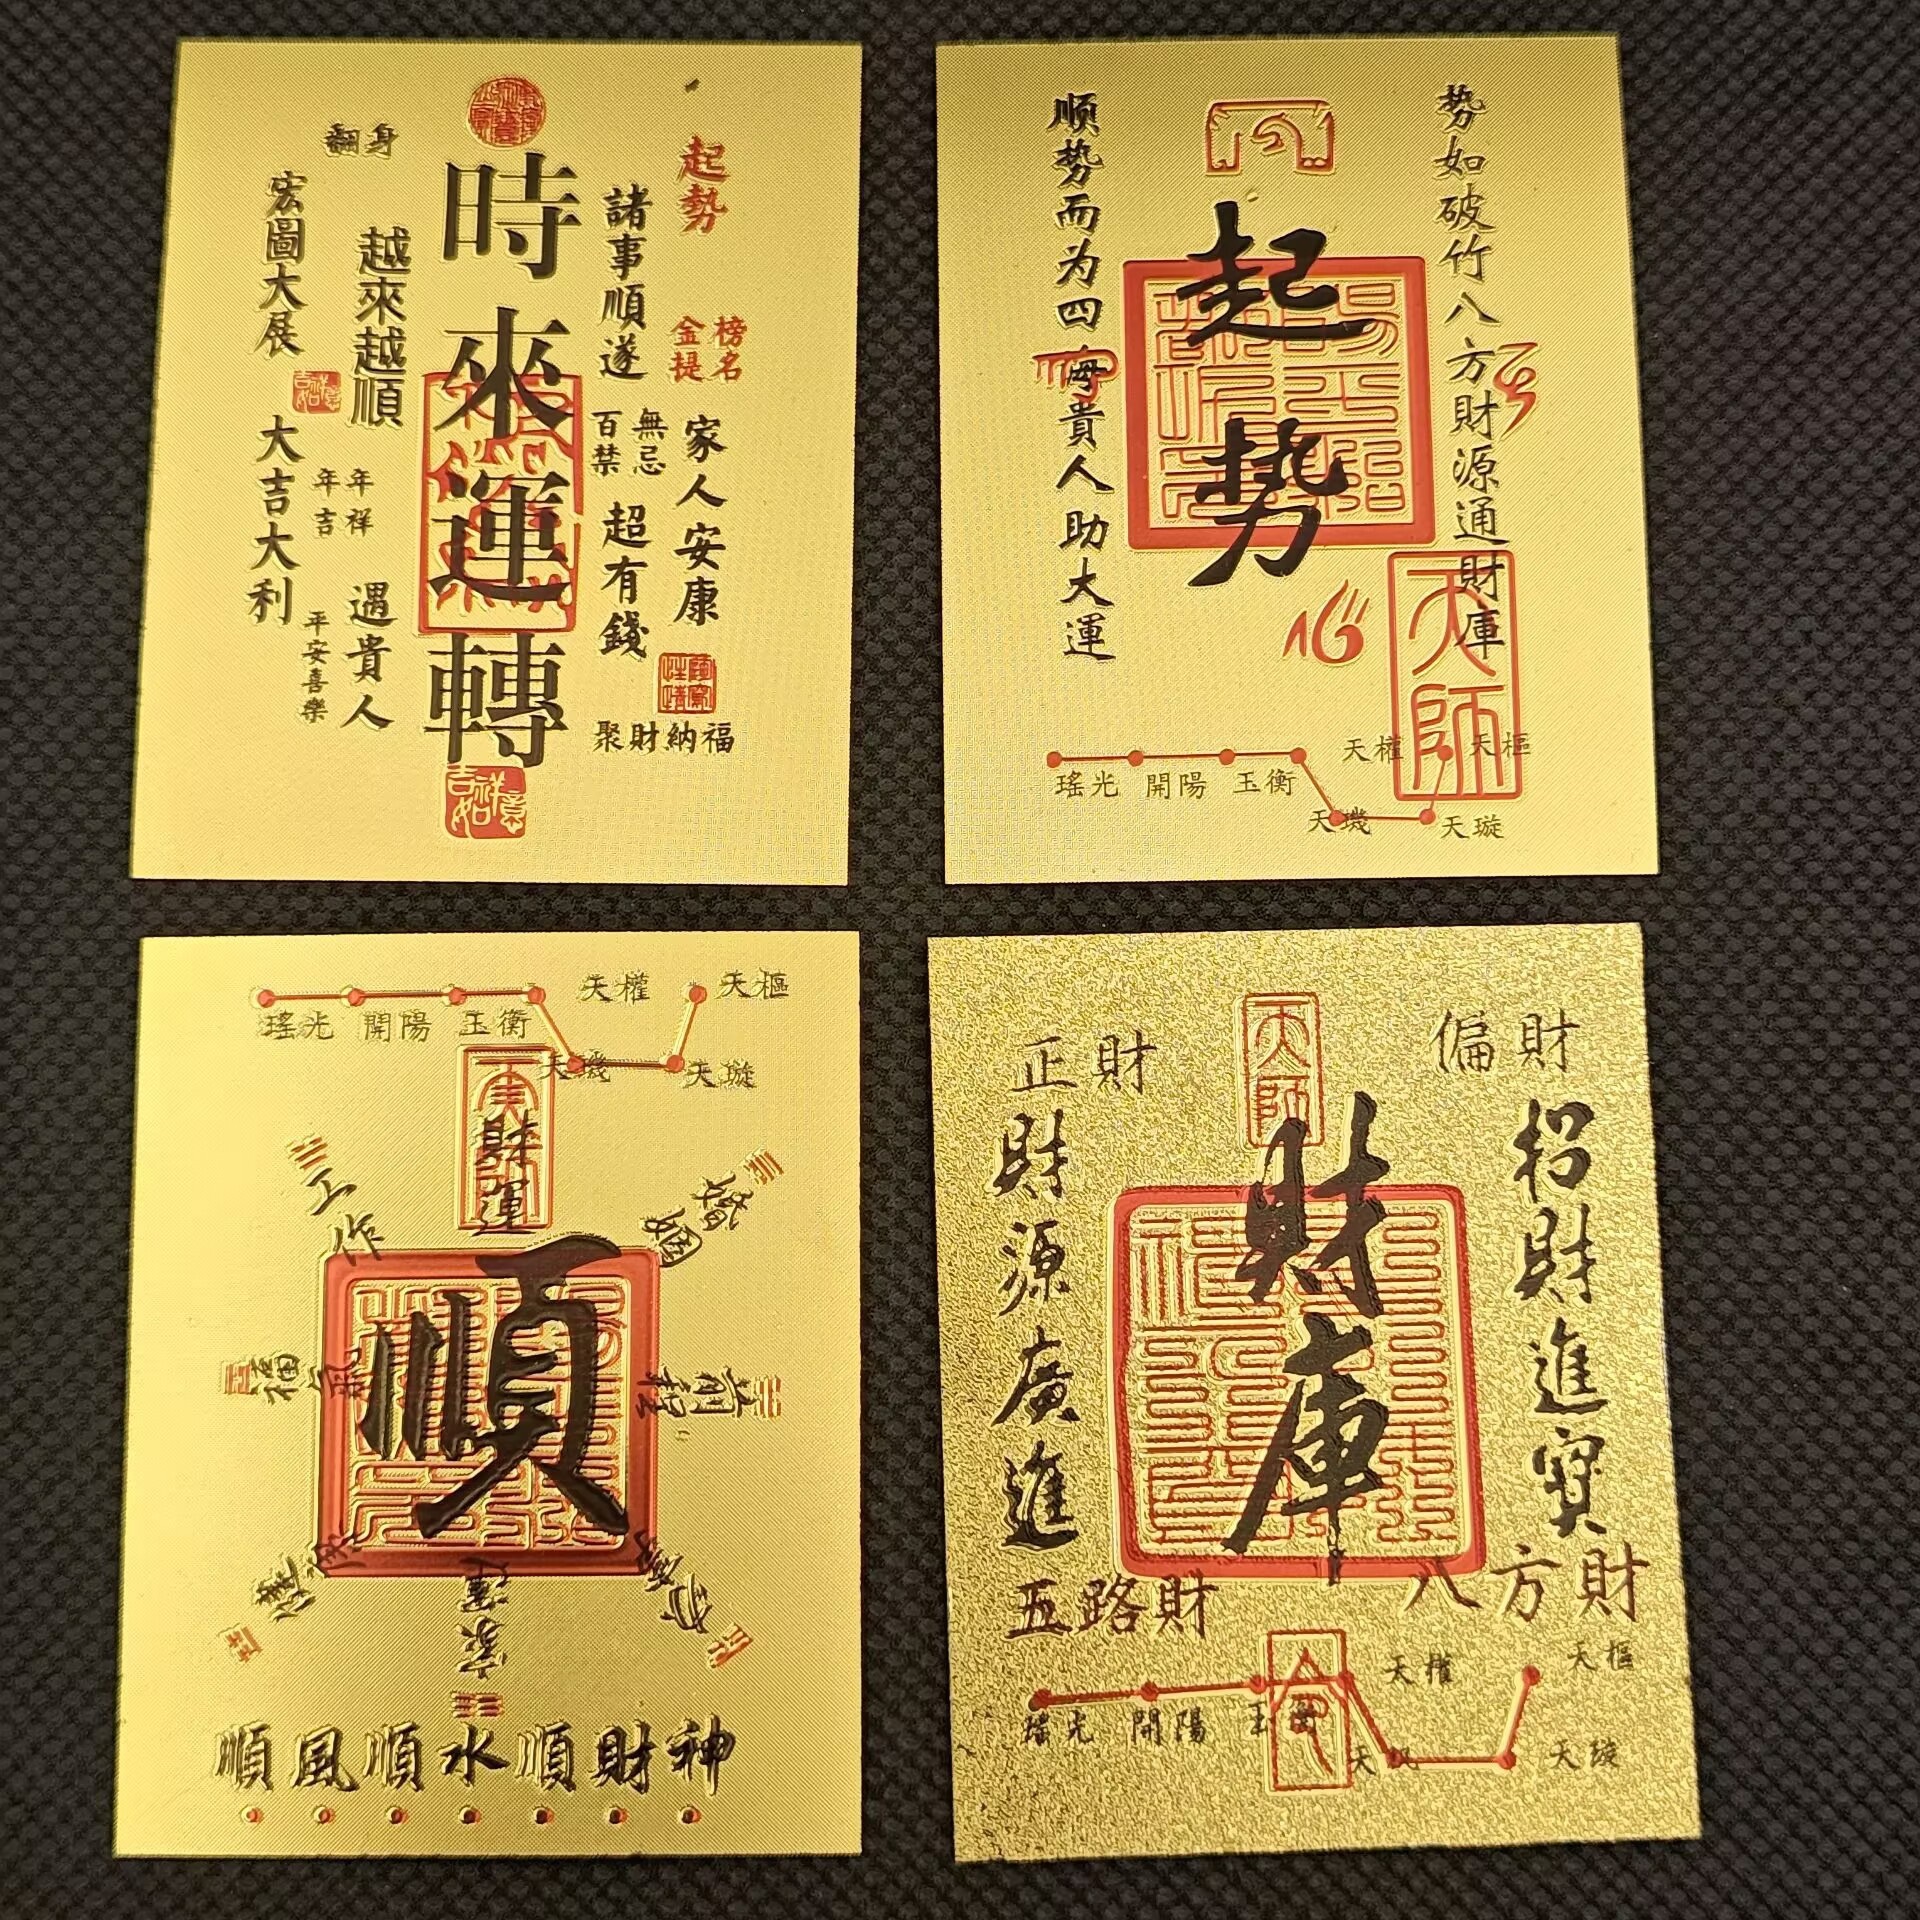 起勢
金榜
提名
家人安康
聚財納福
諸事順遂
百無
禁忌
超有錢
時來運轉
吉祥
如意
翻身
越來越順
年年
吉祥
遇貴人
平安喜樂
宏圖大展
吉祥
如意
大吉大利
势如破竹八方財源通財庫
起势
順势而为四海貴人助大運
天師
天權 天樞
瑤光 開陽 玉衡
天璣 天璇
天權 天樞
瑤光 開陽 玉衡
天璣 天璇
財運
工作
婚姻
順
福氣
前程
健康
家運
順風順水順財神
天師
正財
偏財
招財進寶
財庫
財源廣進
五路財
八方財
天權 天樞
瑤光 開陽 玉衡
天璣 天璇